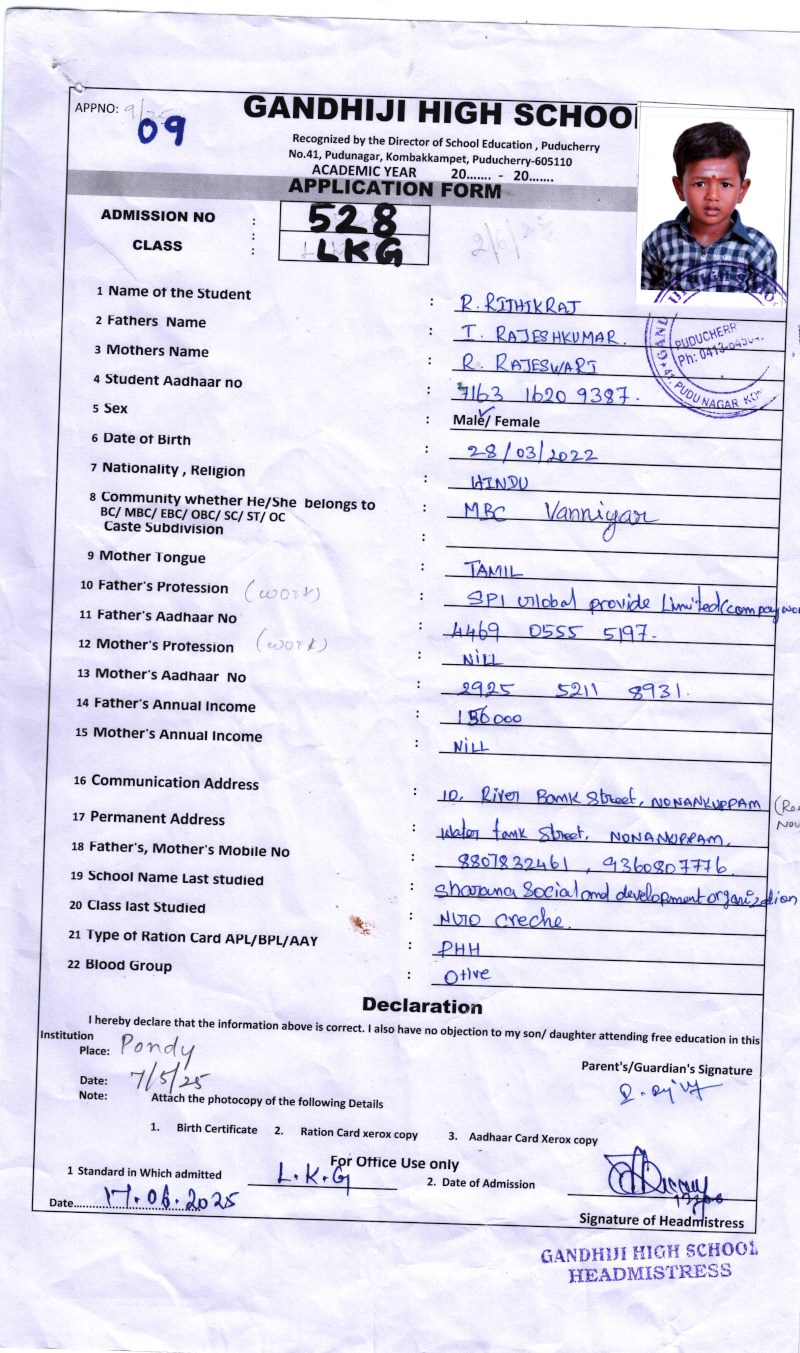 APPNO: 9/25
09
GANDHIJI HIGH SCHOOL
Recognized by the Director of School Education , Puducherry
No.41, Pudunagar, Kombakkampet, Puducherry-605110
ACADEMIC YEAR 20....... - 20.......
APPLICATION FORM
ADMISSION NO : 528
CLASS : LKG
2/6/25
1 Name of the Student : R. RITHIKRAJ
2 Fathers Name : T. RAJESHKUMAR.
3 Mothers Name : R. RAJESWARI
4 Student Aadhaar no : 7163 1620 9387.
5 Sex : Male/ Female
6 Date of Birth : 28/03/2022
7 Nationality , Religion : HINDU
8 Community whether He/She belongs to : MBC Vanniyar
BC/ MBC/ EBC/ OBC/ SC/ ST/ OC
Caste Subdivision :
9 Mother Tongue : TAMIL
10 Father's Profession (work) : SPI Global provide Limited (compay
11 Father's Aadhaar No : 4469 0555 5197.
12 Mother's Profession (work) : NiLL
13 Mother's Aadhaar No : 2925 5211 8931.
14 Father's Annual Income :
15 Mother's Annual Income : NiLL
16 Communication Address : 10, River Bank Street, NONANKUPPAM
17 Permanent Address : Water tank Street, NONANUPPAM.
18 Father's, Mother's Mobile No : 8807832461 , 9360807776.
19 School Name Last studied : Sharana Social and development organization
20 Class last Studied : Creche.
21 Type of Ration Card APL/BPL/AAY : PHH
22 Blood Group : O+ive
Declaration
I hereby declare that the information above is correct. I also have no objection to my son/ daughter attending free education in this
Institution
Place: Pondy
Parent's/Guardian's Signature
Date: 7/5/25
Note: Attach the photocopy of the following Details
1. Birth Certificate 2. Ration Card xerox copy 3. Aadhaar Card Xerox copy
For Office Use only
1 Standard in Which admitted L.K.G 2. Date of Admission
Date.......17.06.2025
Signature of Headmistress
GANDHIJI HIGH SCHOOL
HEADMISTRESS